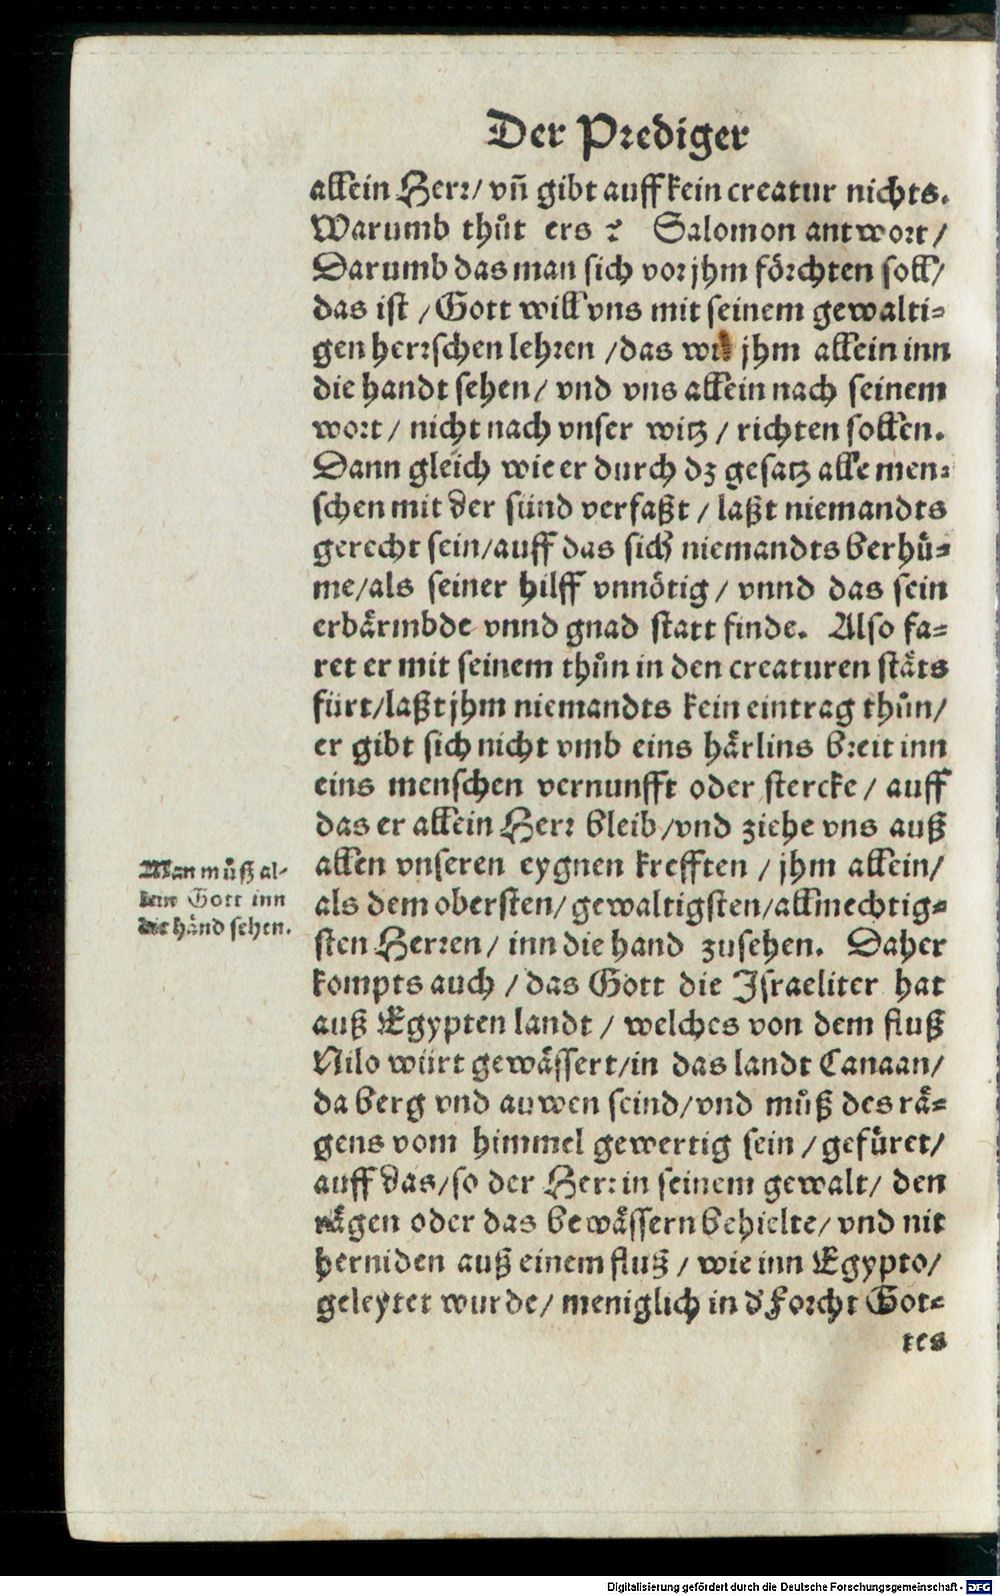 Der Prediger
allein Herr/ vñ gibt auff kein creatur nichts.
Warumb thůt ers? Salomon antwort/
Darumb das man sich vor jhm förchten soll/
das ist / Gott will vns mit seinem gewalti-
gen herrschen lehren / das wir jhm allein inn
die handt sehen/ vnd vns allein nach seinem
wort/ nicht nach vnser witz / richten sollen.
Dann gleich wie er durch dz gesatz alle men-
schen mit der sünd verfaßt / laßt niemandts
gerecht sein/auff das sich niemandts berhů-
me/als seiner hilff vnnötig / vnnd das sein
erbärmbde vnnd gnad statt finde. Also fa-
ret er mit seinem thůn in den creaturen stäts
fürt/laßt jhm niemandts kein eintrag thůn/
er gibt sich nicht vmb eins härlins breit inn
eins menschen vernunfft oder stercke/ auff
das er allein Herr bleib/vnd ziehe vns auß
allen vnseren eygnen krefften / jhm allein/
als dem obersten/ gewaltigsten/allmechtig-
sten Herren/ inn die hand zusehen. Daher
kompts auch / das Gott die Israeliter hat
auß Egypten landt / welches von dem fluß
Nilo würt gewässert/in das landt Canaan/
da berg vnd auwen seind/vnd můß des rä-
gens vom himmel gewertig sein / gefüret/
auff das/so der Herr in seinem gewalt/ den
rägen oder das bewässern behielte/ vnd nit
herniden auß einem fluß / wie inn Egypto/
geleytet wurde/ meniglich in d' forcht Got-
tes
Man můß al-
lein Gott inn
die händ sehen.
Digitalisierung gefördert durch die Deutsche Forschungsgemeinschaft - DFG